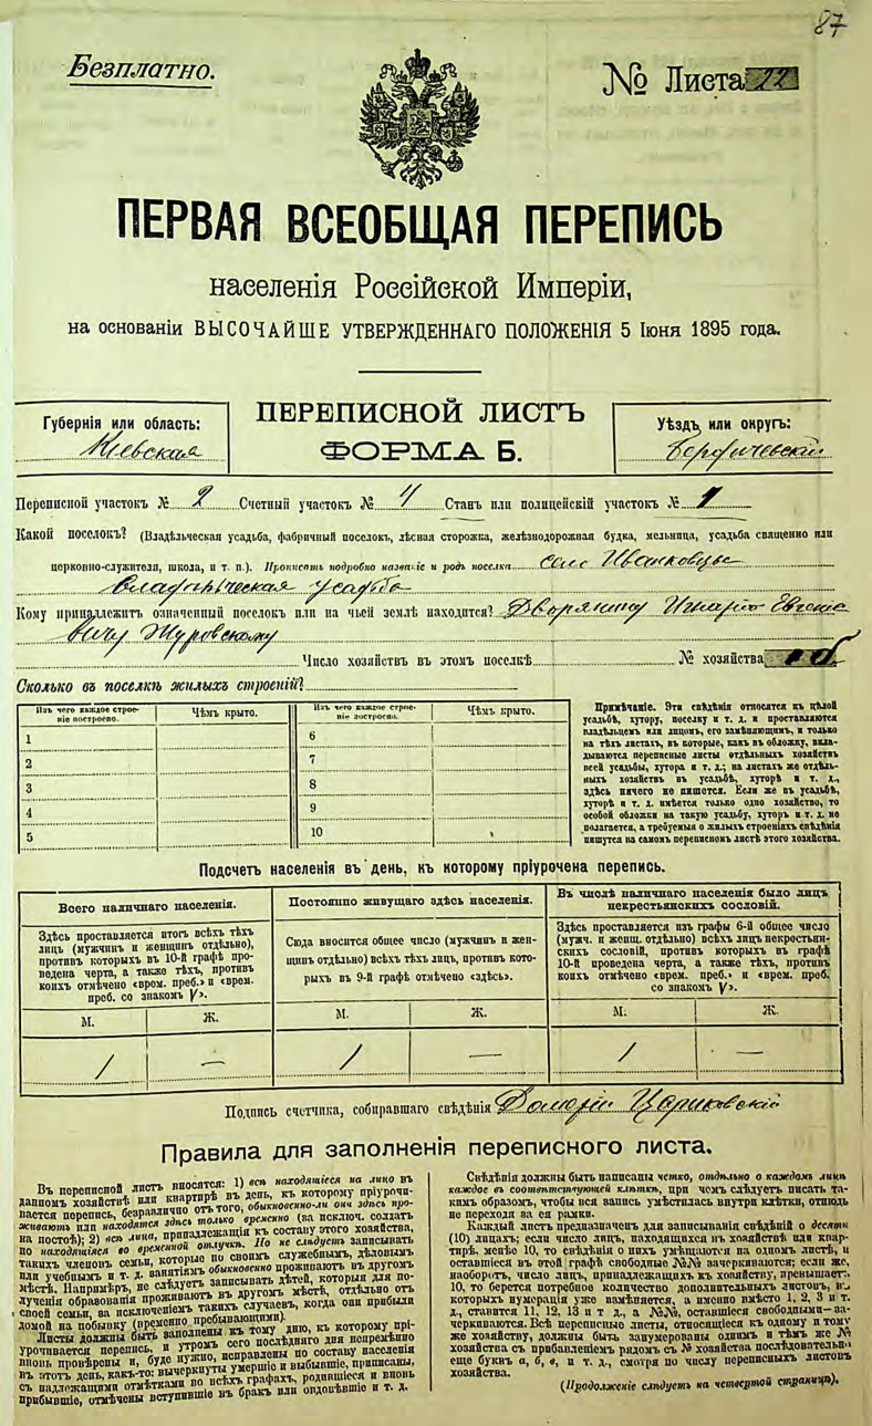 87
Безплатно.
№ Листа 22
ПЕРВАЯ ВСЕОБЩАЯ ПЕРЕПИСЬ
населенія Россійской Имперіи,
на основаніи ВЫСОЧАЙШЕ УТВЕРЖДЕННАГО ПОЛОЖЕНІЯ 5 Іюня 1895 года.
Губернія или область:
Кіевская
ПЕРЕПИСНОЙ ЛИСТЪ
ФОРМА Б.
Уѣздъ или округъ:
Бердичевскій
Переписной участокъ № 2 Счетный участокъ № 4 Станъ или полицейскій участокъ № 1
Какой поселокъ? (Владѣльческая усадьба, фабричный поселокъ, лѣсная сторожка, желѣзнодорожная будка, мельница, усадьба священно или
церковно-служителя, школа, и т. п.). Прописать подробно названіе и родъ поселка село Иванковцы
Владѣльческая усадьба
Кому принадлежитъ означенный поселокъ или на чьей землѣ находится? Дворянину Игнатію Евгеніе
вичу Журовскому
Число хозяйствъ въ этомъ поселкѣ № хозяйства
Сколько въ поселкѣ жилыхъ строеній?
Изъ чего каждое строеніе построено. Чѣмъ крыто. Изъ чего каждое строеніе построено. Чѣмъ крыто.
1 6
2 7
3 8
4 9
5 10
Примѣчаніе. Эти свѣдѣнія относятся къ цѣлой
усадьбѣ, хутору, поселку и т. д. и проставляются
владѣльцемъ или лицомъ, его замѣняющимъ, и только
на тѣхъ листахъ, въ которые, какъ въ обложку, вкла-
дываются переписные листы отдѣльныхъ хозяйствъ
всей усадьбы, хутора и т. д.; на листахъ же отдѣль-
ныхъ хозяйствъ въ усадьбѣ, хуторѣ и т. д.,
здѣсь ничего не пишется. Если же въ усадьбѣ,
хуторѣ и т. д. имѣется только одно хозяйство, то
особой обложки на такую усадьбу, хуторъ и т. д. не
полагается, а требуемыя о жилыхъ строеніяхъ свѣдѣнія
пишутся на самомъ переписномъ листѣ этого хозяйства.
Подсчетъ населенія въ день, къ которому пріурочена перепись.
Всего наличнаго населенія.
Здѣсь проставляется итогъ всѣхъ тѣхъ
лицъ (мужчинъ и женщинъ отдѣльно),
противъ которыхъ въ 10-й графѣ про-
ведена черта, а также тѣхъ, противъ
коихъ отмѣчено «врем. преб.» и «врем.
преб. со знакомъ V».
М. Ж.
1 —
Постоянно живущаго здѣсь населенія.
Сюда вносится общее число (мужчинъ и жен-
щинъ отдѣльно) всѣхъ тѣхъ лицъ, противъ кото-
рыхъ въ 9-й графѣ отмѣчено «здѣсь».
М. Ж.
1 —
Въ числѣ наличнаго населенія было лицъ
некрестьянскихъ сословій.
Здѣсь проставляется изъ графы 6-й общее число
(мужч. и женщ. отдѣльно) всѣхъ лицъ некрестьян-
скихъ сословій, противъ которыхъ въ графѣ
10-й проведена черта, а также тѣхъ, противъ
коихъ отмѣчено «врем. преб.» и «врем. преб.
со знакомъ V».
М. Ж.
1 —
Подпись счетчика, собиравшаго свѣдѣнія
Правила для заполненія переписного листа.
Въ переписной листъ вносятся: 1) всѣ находящіеся на лицо въ
данномъ хозяйствѣ или квартирѣ въ день, къ которому пріурочи-
вается перепись, безразлично отъ того, обыкновенно-ли они здѣсь про-
живаютъ или находятся здѣсь только временно (за исключ. солдатъ
на постоѣ); 2) всѣ лица, принадлежащія къ составу этого хозяйства,
но находящіяся во временной отлучкѣ. Но не слѣдуетъ записывать
такихъ членовъ семьи, которые по своимъ служебнымъ, дѣловымъ
или учебнымъ и т. д. занятіямъ обыкновенно проживаютъ въ другомъ
мѣстѣ. Напримѣръ, не слѣдуетъ записывать дѣтей, которыя для по-
лученія образованія проживаютъ въ другомъ мѣстѣ, отдѣльно отъ
своей семьи, за исключеніемъ такихъ случаевъ, когда они прибыли
домой на побывку (временно пребывающими).
Листы должны быть заполнены къ тому дню, къ которому прі-
урочивается перепись, и утромъ сего послѣдняго дня непремѣнно
вновь провѣрены и, буде нужно, исправлены по составу населенія
въ этотъ день, какъ-то: вычеркнуты умершіе и выбывшіе, приписаны,
съ надлежащими отмѣтками во всѣхъ графахъ, родившіеся и вновь
прибывшіе, отмѣчены вступившіе въ бракъ или овдовѣвшіе и т. д.
Свѣдѣнія должны быть написаны четко, отдѣльно о каждомъ лицѣ
каждое въ соотвѣтствующей клѣткѣ, при чемъ слѣдуетъ писать та-
кимъ образомъ, чтобы вся запись умѣстилась внутри клѣтки, отнюдь
не переходя за ея рамки.
Каждый листъ предназначенъ для записыванія свѣдѣній о десяти
(10) лицахъ; если число лицъ, находящихся въ хозяйствѣ или квар-
тирѣ, менѣе 10, то свѣдѣнія о нихъ умѣщаются на одномъ листѣ, и
оставшіеся въ этой графѣ свободные №№ зачеркиваются; если же,
наоборотъ, число лицъ, принадлежащихъ къ хозяйству, превышаетъ
10, то берется потребное количество дополнительныхъ листовъ, въ
которыхъ нумерація уже измѣняется, а именно вмѣсто 1, 2, 3 и т.
д., ставится 11, 12, 13 и т д., а №№, оставшіеся свободными—за-
черкиваются. Всѣ переписные листы, относящіеся къ одному и тому
же хозяйству, должны быть занумерованы однимъ и тѣмъ же №
хозяйства съ прибавленіемъ рядомъ съ № хозяйства послѣдовательно
еще буквъ а, б, в, и т. д., смотря по числу переписныхъ листовъ
хозяйства.
(Продолженіе слѣдуетъ на четвертой страницѣ).